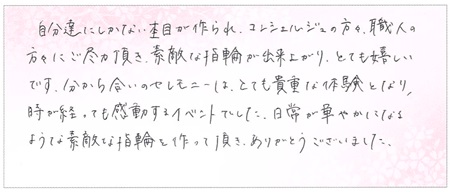 自分達にしかない杢目が作られ、コンシェルジュの方々、職人の
方々にご尽力頂き、素敵な指輪が出来上がり、とても嬉しい
です。分かち合いのセレモニーは、とても貴重な体験となり、
時が経っても感動するイベントでした。日常が華やかになる
ような素敵な指輪を作って頂き、ありがとうございました。